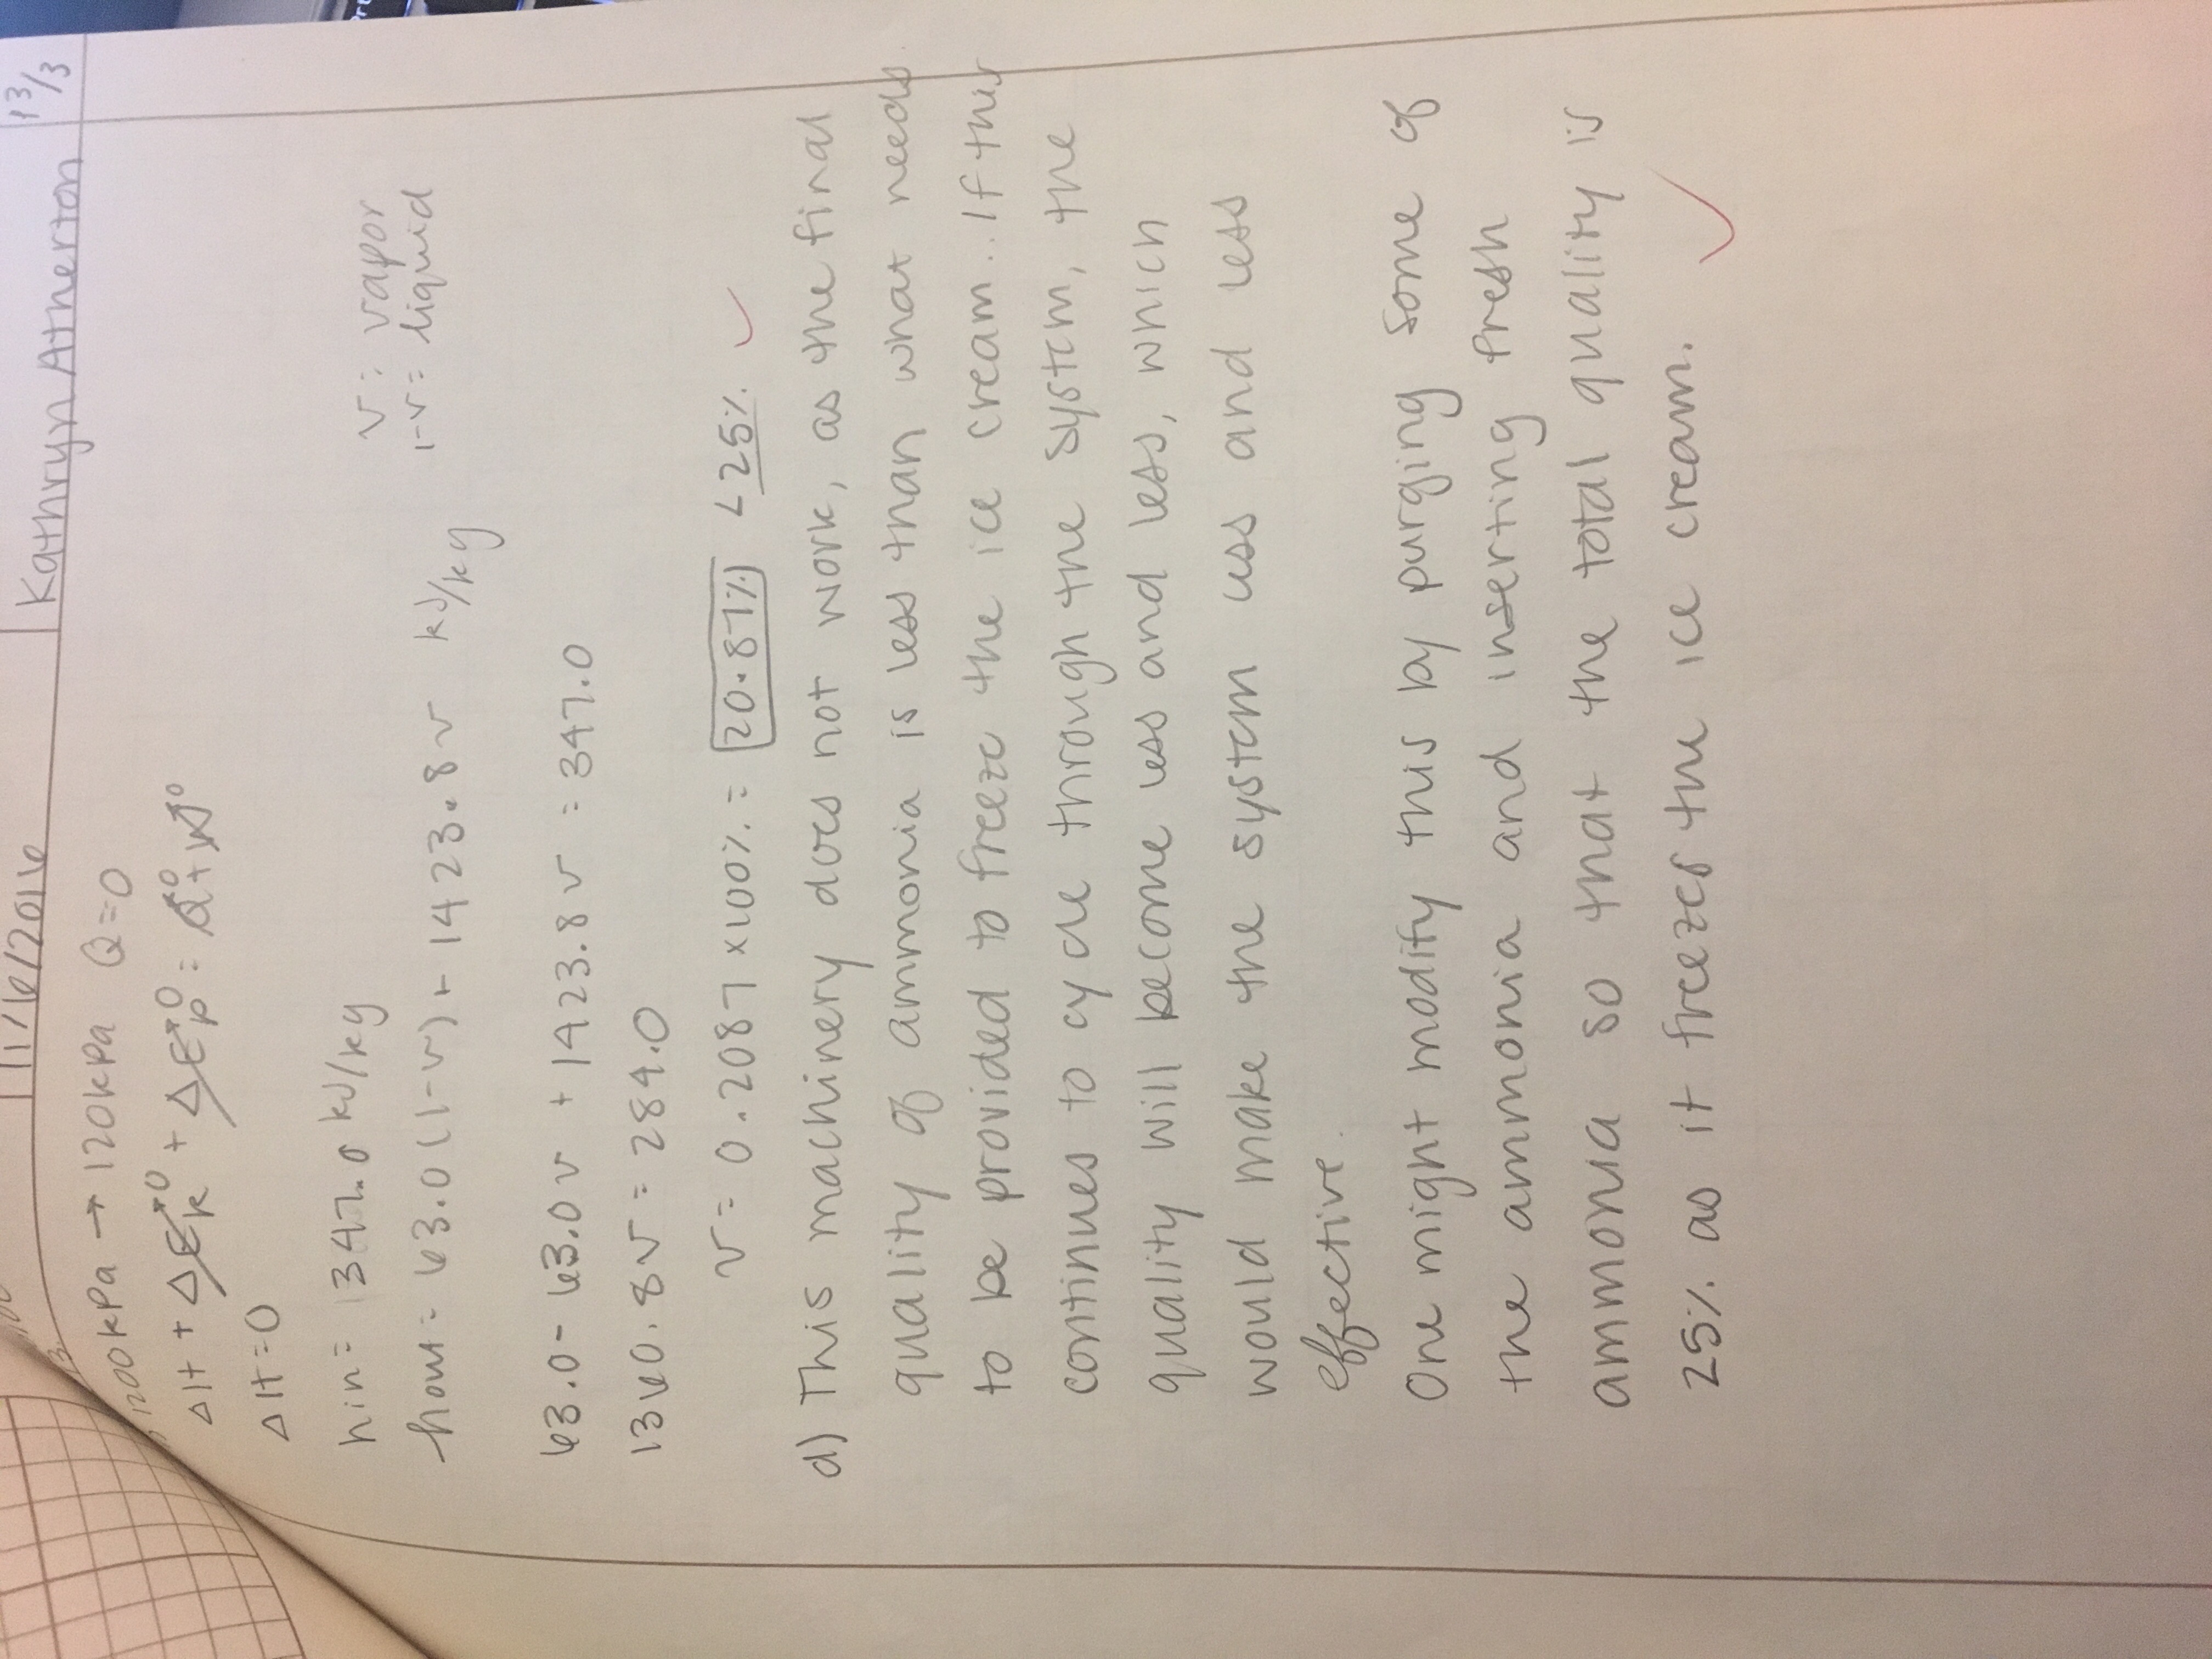 11/6/2016
Kathryn Atherton
3/3
1200kPa → 120kPa Q=0
ΔH + ΔEk→0 + ΔEp→0 = Q→0 + W→0
ΔH=0
hin= 347.0 kJ/kg
v: vapor
hout= 63.0(1-v)+ 1423.8v kJ/kg
1-v= liquid
63.0- 63.0v + 1423.8v = 347.0
1360.8v = 284.0
v= 0.2087 x100% = 20.87% < 25% ✓
d) This machinery does not work, as the final
quality of ammonia is less than what needs
to be provided to freeze the ice cream.. If this
continues to cycle through the system, the
quality will become less and less, which
would make the system less and less
effective.
One might modify this by purging some of
the ammonia and inserting fresh
ammonia so that the total quality is
25% as it freezes the ice cream. ✓